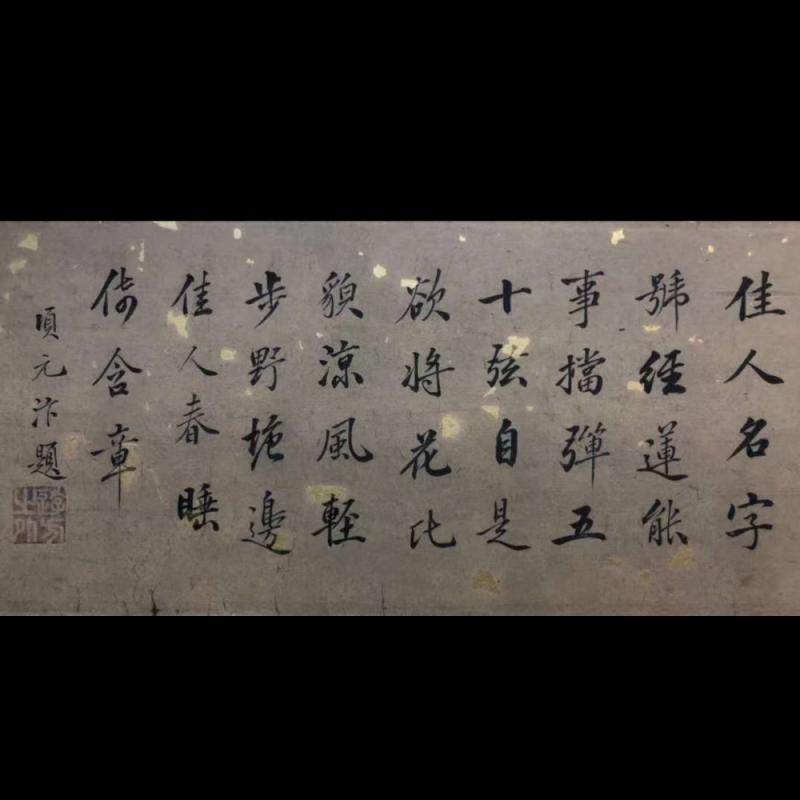 佳人名字
號經蓮能
事擋彈五
十弦自是
欲將花比
貌涼風輕
步野塘邊
佳人春睡
倚含章
項元汴題